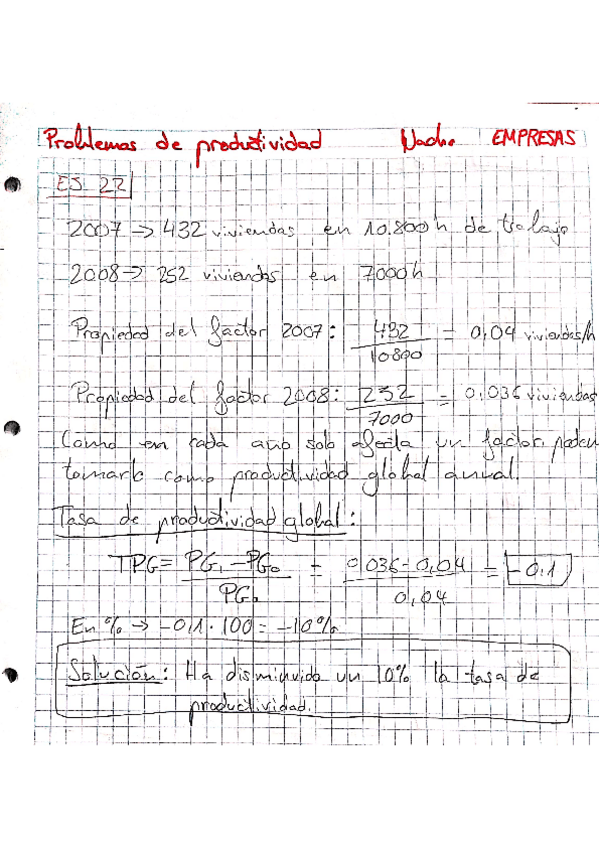 Problemas de productividad Nacho EMPRESAS
EJ 22
2007 → 432 viviendas en 10.800h de trabajo
2008 → 252 viviendas en 7000h
Propiedad del factor 2007: 432 / 10800 = 0,04 viviendas/h
Propiedad del factor 2008: 252 / 7000 = 0,036 viviendas
Como en cada año solo afecta un factor, podem
tomarlo como productividad global anual.
Tasa de productividad global:
TPG = PG₁ - PG₀ / PG₀ = 0,036 - 0,04 / 0,04 = -0,1
En % → -0,1 · 100 = -10%
Solución: Ha disminuido un 10% la tasa de
productividad.